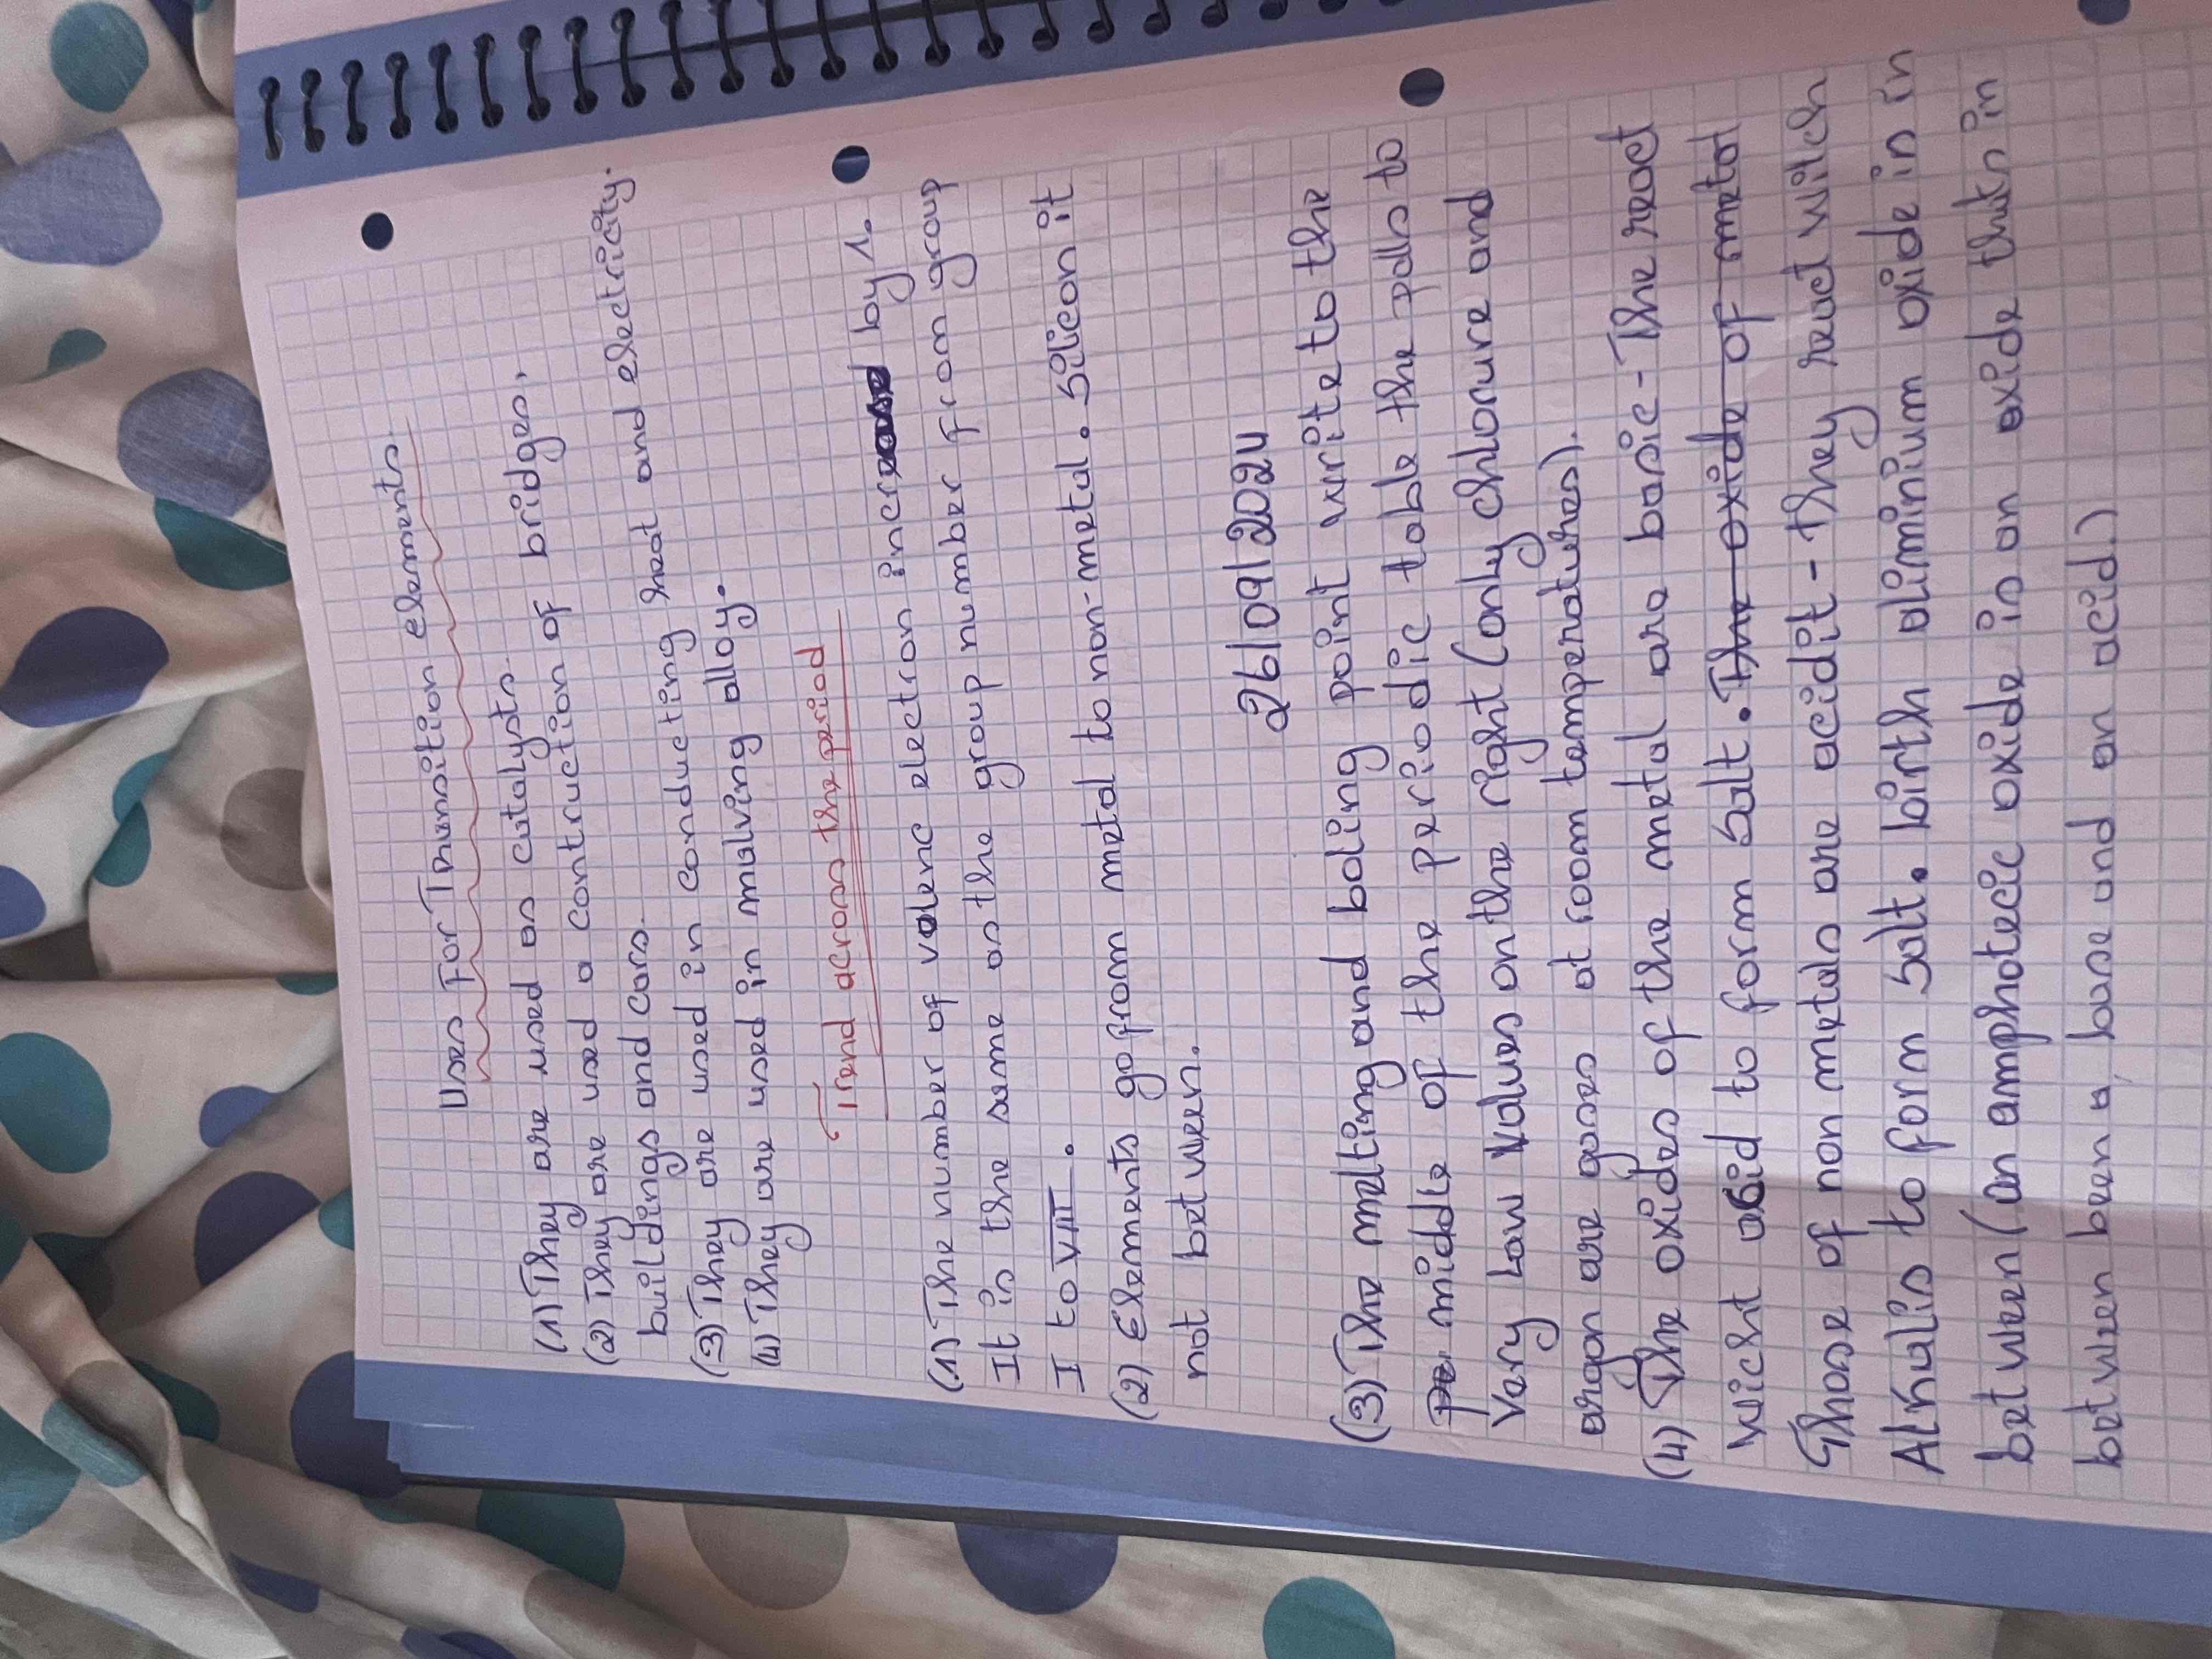 Uses For Transition elements.
(1) They are used as catalysts.
(2) They are used a contruction of bridges,
buildings and cars.
(3) They are used in conducting heat and electricity.
(4) They are used in making alloy.
Trend across the period
(1) The number of valenc electron increase by 1.
It is the same as the group number from group
I to VIII.
(2) Elements go from metal to non-metal. Silicon it
not between.
26/09/2024
(3) The melting and boling point write to the
middle of the periodic table the palls to
Very Low Values on the right (only chlorure and
argon are gases at room temperatures).
(4) The oxides of the metal are basic - The react
wicht acid to form Salt. The oxide of metal
Those of non metals are acidit - they react witch
Alkalis to form Salt. birth aliminium oxide is in
between (an amphoteric oxide is an oxide thats in
between been a base and an acid.)